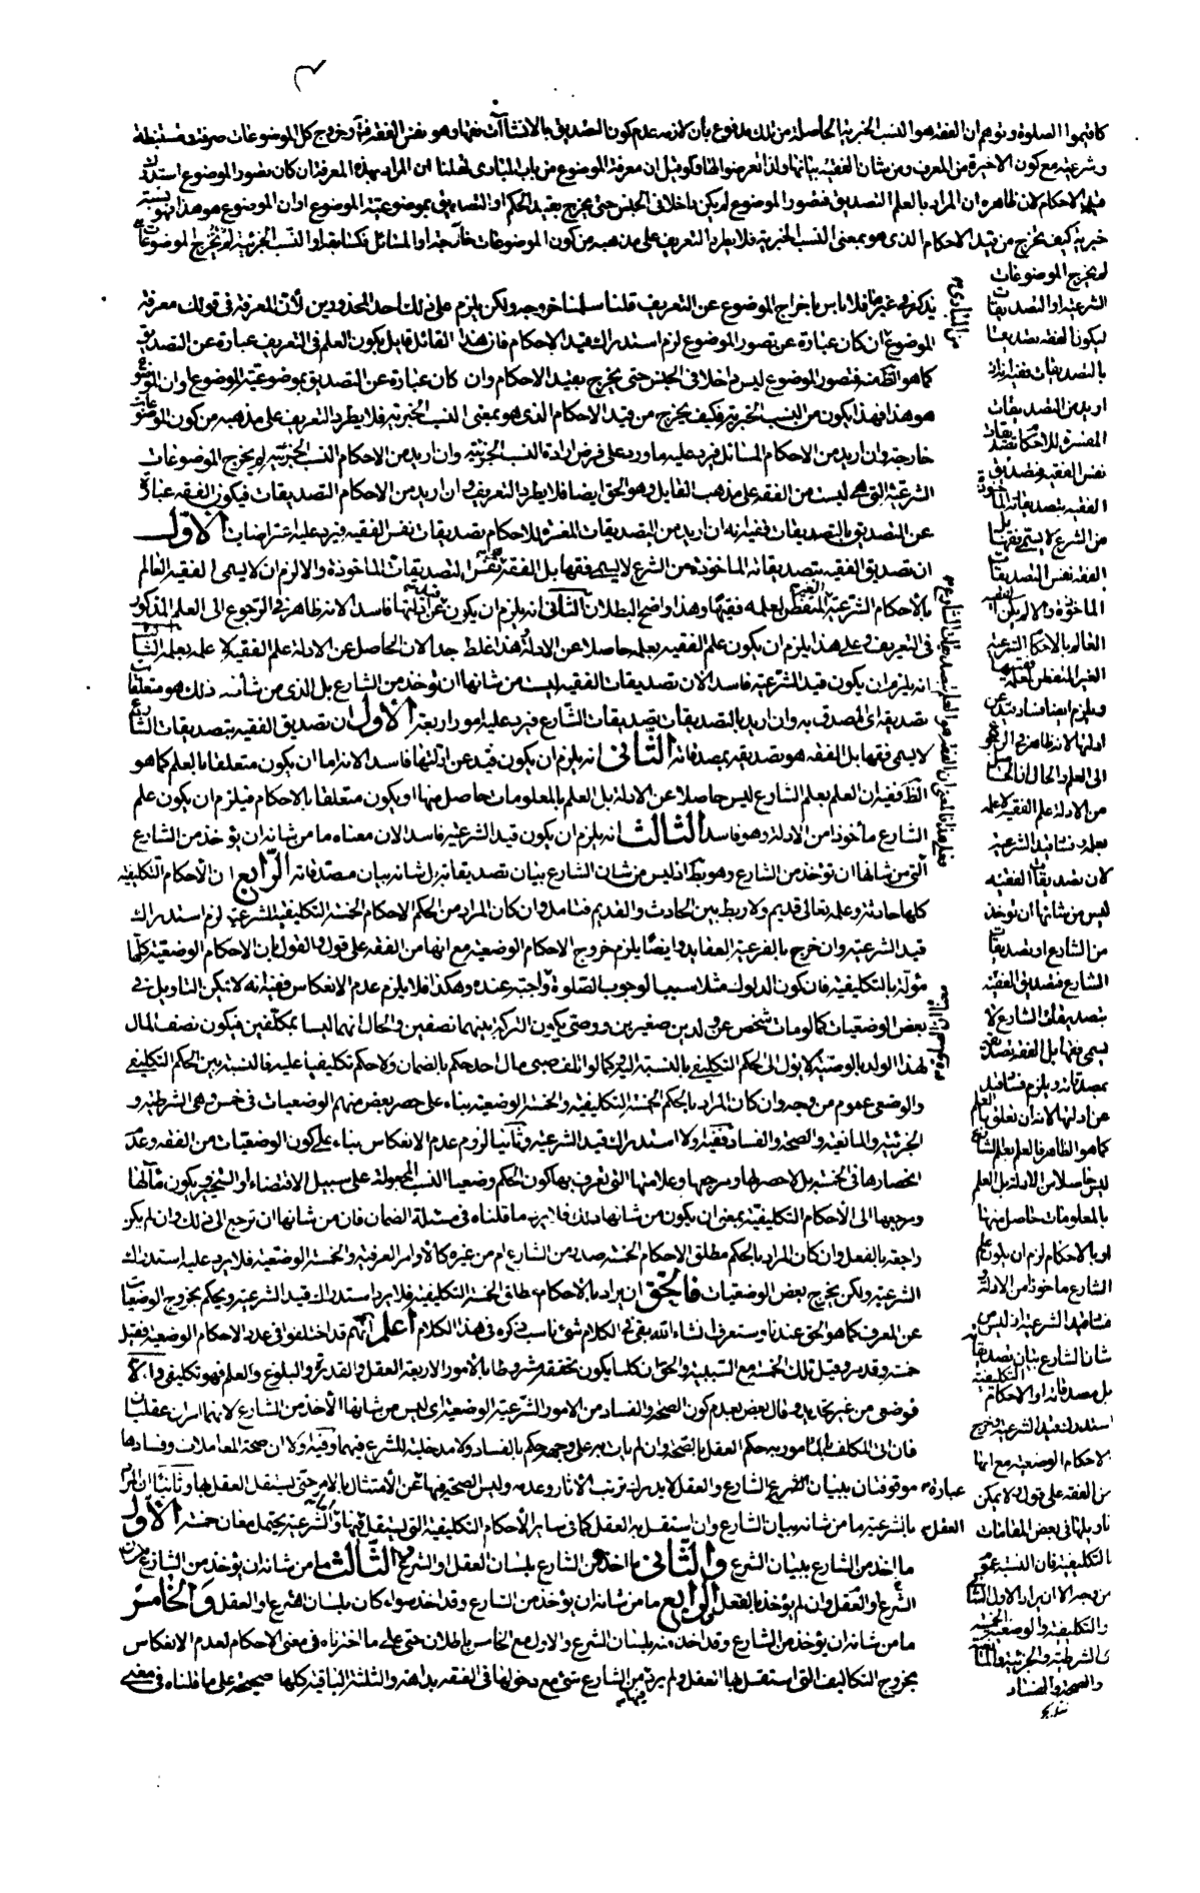 كاقيموا الصلوة وتوهم ان الفقه هو النسب الخبرية الحاصلة من تلك مدفوع بان لازمه عدم كون التصديق بالانشاآت فقها وهو نفس الفقه وخروج كل الموضوعات صرفة ومستنبطة
وشرعية مع كون الاخيرة من المعرف ومن شان الفقيه بيانها ولذا تعرضوا لها فلو قيل ان معرفة الموضوع من باب المبادى لقلنا ان المراد بهذه المعرفة ان كان تصور الموضوع استدرك
قيد الاحكام لان ظاهره ان المراد بالعلم التصديق فتصور الموضوع لم يكن داخلا فى الجنس حتى يخرج بقيد الحكم او التصديق بموضوعية الموضوع او ان الموضوع هو هذا فهو نسبة
خبرية كيف يخرج من قيد الاحكام الذى هو بمعنى النسب الخبرية فلا يطرد التعريف على مذهبه من كون الموضوعات خارجة او المسائل فكذا يقاد او النسب الجزئية لم يخرج الموضوعات
يذكر فى غيرها فلا باس باخراج الموضوع عن التعريف قلنا سلمنا خروجه ولكن يلزم على ذلك احد المحذورين لأن المعرفة فى قولك معرفة
الموضوع ان كان عبارة عن تصور الموضوع لزم استدراك قيد الاحكام فان هذا القائل قايل بكون العلم فى التعريف عبارة عن التصديق
كما هو الظ منه فتصور الموضوع ليس داخلا فى الجنس حتى يخرج بقيد الاحكام وان كان عبارة عن التصديق بموضوعية الموضوع او ان الموضوع
هو هذا فهذا يكون من النسب الخبرية فكيف يخرج من قيد الاحكام الذى هو بمعنى النسب الخبرية فلا يطرد التعريف على مذهبه من كون الموضوعات
خارجة وان اريد من الاحكام المسائل فيرد عليه ما ورد على فرض ارادة النسب الجزئية وان اريد من الاحكام النسب الجزئية لم يخرج الموضوعات
الشرعية التى هى ليست من الفقه على مذهب القايل وهو الحق ايضا فلا يطرد التعريف وان اريد من الاحكام التصديقات فيكون الفقه عبارة
عن التصديق بالتصديقات ففيه انه ان اريد من التصديقات المفسرة للاحكام تصديقات نفس الفقيه فيرد عليه اعتراضات الأول
ان تصديق الفقيه بتصديقاته الماخوذة من الشرع لا يسمى فقها بل الفقه نفس التصديقات الماخوذة والا لزم ان لا يسمى الفقيه العالم
بالأحكام الشرعية الغير المتفطن لعلمه فقيها وهذا واضح البطلان الثانى انه يلزم ان يكون قيد عن ادلتها فاسدا لانه ظاهر فى الرجوع الى العلم المذكور
فى التعريف وعلى هذا يلزم ان يكون علم الفقيه بعلمه حاصلا عن الادلة وهذا غلط جدا لان الحاصل عن الادلة علم الفقيه لا علمه بعلمه الثالث
انه يلزم ان يكون قيد الشرعية فاسدا لان تصديقات الفقيه ليست من شانها ان تؤخذ من الشارع بل الذى من شأنه ذلك هو متعلقات
تصديقه اى المصدق به وان اريد بالتصديقات تصديقات الشارع فيرد عليه امور اربعة الأول ان تصديق الفقيه بتصديقات الشارع
لا يسمى فقها بل الفقه هو تصديقه بمصدقاته الثانى انه يلزم ان يكون قيد عن ادلتها فاسدا لانه اما ان يكون متعلقا بالعلم كما هو
الظ ففيه ان العلم بعلم الشارع ليس حاصلا عن الادلة بل العلم بالمعلومات حاصل منها او يكون متعلقا بالاحكام فيلزم ان يكون علم
الشارع مأخوذا من الادلة وهو فاسد الثالث انه يلزم ان يكون قيد الشرعية فاسدا لان معناه ما من شانه ان يؤخذ من الشارع
التى من شانها ان تؤخذ من الشارع وهو بط اذ ليس من شان الشارع بيان تصديقاته بل شانه بيان مصدقاته الرابع ان الأحكام التكليفية
كلها حادثة وعلمه تعالى قديم ولا ربط بين الحادث والقديم فتامل وان كان المراد من الحكم الاحكام الخمسة التكليفية الشرعية لزم استدراك
قيد الشرعية وان خرج بالفرعية العقايد وايضا يلزم خروج الاحكام الوضعية مع انها من الفقه على قول والقول بان الاحكام الوضعية كلها
مؤلة بالتكليفية فان كون الدلوك مثلا سببا لوجوب الصلوة واجبة عنده وهكذا فلا يلزم عدم الانعكاس ففيه انه لا يمكن التاويل فى
بعض الوضعيات كما لو مات شخص عن ولدين صغيرين ووصى بكون التركة بينهما نصفين والحال انهما ليسا بمكلفين فيكون نصف المال
لهذا الولد بالوصية لا يؤل الى الحكم التكليفى بالنسبة اليه وكما لو اتلف صبى مال احد حكم بالضمان ولا حكم تكليفيا عليه فالنسبة بين الحكم التكليفى
والوضعى عموم من وجه وان كان المراد بالحكم الخمسة التكليفية والخمسة الوضعية بناء على حصر بعض منهم الوضعيات فى خمس وهى الشرطية و
الجزئية والمانعية والصحة والفساد ففيه اولا استدراك قيد الشرعية وثانيا لزوم عدم الانعكاس بناء على كون الوضعيات من الفقه وعدم
انحصارها فى الخمسة بل لا حصر لها ومرجعها وعلامتها التى تعرف بها كون الحكم وضعيا النسب المجعولة على سبيل الاقتضاء او التخيير ويكون مآلها
ومرجعها الى الأحكام التكليفية بمعنى ان يكون من شانها ذلك فلا يرد ما قلناه فى مسئلة الضمان فان من شانها ان ترجع الى ذلك وان لم يكن
راجعة بالفعل وان كان المراد بالحكم مطلق الاحكام الخمسة صدر من الشارع ام من غيره كالأوامر العرفية والخمسة الوضعية فلا يرد عليه استدراك
الشرعية ولكن يخرج بعض الوضعيات فالحق ان يراد بالاحكام مطلق الخمسة التكليفية فلا يرد استدراك قيد الشرعية ويحكم بخروج الوضعيات
عن المعرف كما هو الحق عندنا وستعرف انشاء الله بقى فى الكلام شئ ناسب ذكره فى هذا الكلام اعلم انهم قد اختلفوا فى عدد الاحكام الوضعية فقيل
خمسة وقد مر وقيل تلك الخمسة مع السببية والحق ان كلما يكون تحققه مشروطا بالأمور الاربعة العقل والقدرة والبلوغ والعلم فهو تكليفى والا
فوضعى من غير تحديد وقال بعض بعدم كون الصحة والفساد من الامور الشرعية الوضعية اى ليس من شانها الأخذ من الشارع لانهما امران عقليان
فان اتى المكلف بالمامور به حكم العقل بالصحة وان لم يات به على وجهه حكم بالفساد ولا مدخلية للشرع فيهما وفيه اولا ان صحة المعاملات وفسادها
موقوفتان ببيان الشارع والعقل لا يدرك ترتب الاثار وعدمه وليس الصحة فيها عن الأمتثال بالامر حتى يستقل العقل بها وثانيا ان المراد
بالشرعية ما من شانه بيان الشارع وان استقل به العقل كما فى ساير الأحكام التكليفية التى يستقل فيها والشرعية يحتمل معان خمسة الأول
ما اخذ من الشارع ببيان الشرع والثانى ما اخذ من الشارع بلسان العقل والشرع الثالث ما من شانه ان يؤخذ من الشارع بلسان
الشرع او العقل وان لم يؤخذ بالفعل الرابع ما من شانه ان يؤخذ من الشارع وقد اخذ سواء كان بلسان الشرع او العقل والخامس
ما من شانه ان يؤخذ من الشارع وقد اخذ منه بلسان الشرع والاول مع الخامس باطلان حتى على ما اخترناه فى معنى الاحكام لعدم الانعكاس
بخروج التكاليف التى استقل بها العقل ولم يرد من الشارع شئ مع دخولها فى الفقه بداهة والثلثة الباقية كلها صحيحة على ما قلناه فى معنى
فيها
لم يخرج الموضوعات
الشرعية او التصديقات
ليكون الفقه تصديقا
بالتصديقات ففيه انه ان
اريد من التصديقات
المفسرة للاحكام تصديقات
نفس الفقيه فتصديق
الفقيه بتصديقاته الماخوذة
من الشرع لا يسمى فقها بل
الفقه نفس التصديقات
الماخوذة والا لم يكن الفقيه
العالم بالاحكام الشرعية
الغير المتفطن لعلمه فقيها
ويلزم ايضا فساد قيد عن
ادلتها لانه ظاهر فى الرجوع
الى العلم والحال ان الحاصل
من الادلة علم الفقيه لا علمه
بعلمه وفساد قيد الشرعية
لان تصديقات الفقيه
ليس من شانها ان تؤخذ
من الشارع او تصديقات
الشارع فتصديق الفقيه
بتصديقات الشارع لا
يسمى فقها بل الفقه تصديقه
بمصدقاته ويلزم فساد قيد
عن ادلتها لانه ان تعلق بالعلم
كما هو الظاهر فالعلم بعلم الشارع
ليس حاصلا من الادلة بل العلم
بالمعلومات حاصل منها
او بالاحكام لزم ان يكون علم
الشارع ماخوذا من الادلة
وفساد قيد الشرعية اذ ليس
شان الشارع بيان تصديقاته
بل مصدقاته او الاحكام التكليفية
استدرك قيد الشرعية وخرج
الاحكام الوضعية مع انها
من الفقه على قول ولا يمكن
تاويلها فى بعض المقامات
بالتكليفية فان النسبة عموم
من وجه الا ان يراد الاول
والتكليفية والوضعية الخمسة
والشرطية والجزئية والمانعية
والصحة والفساد